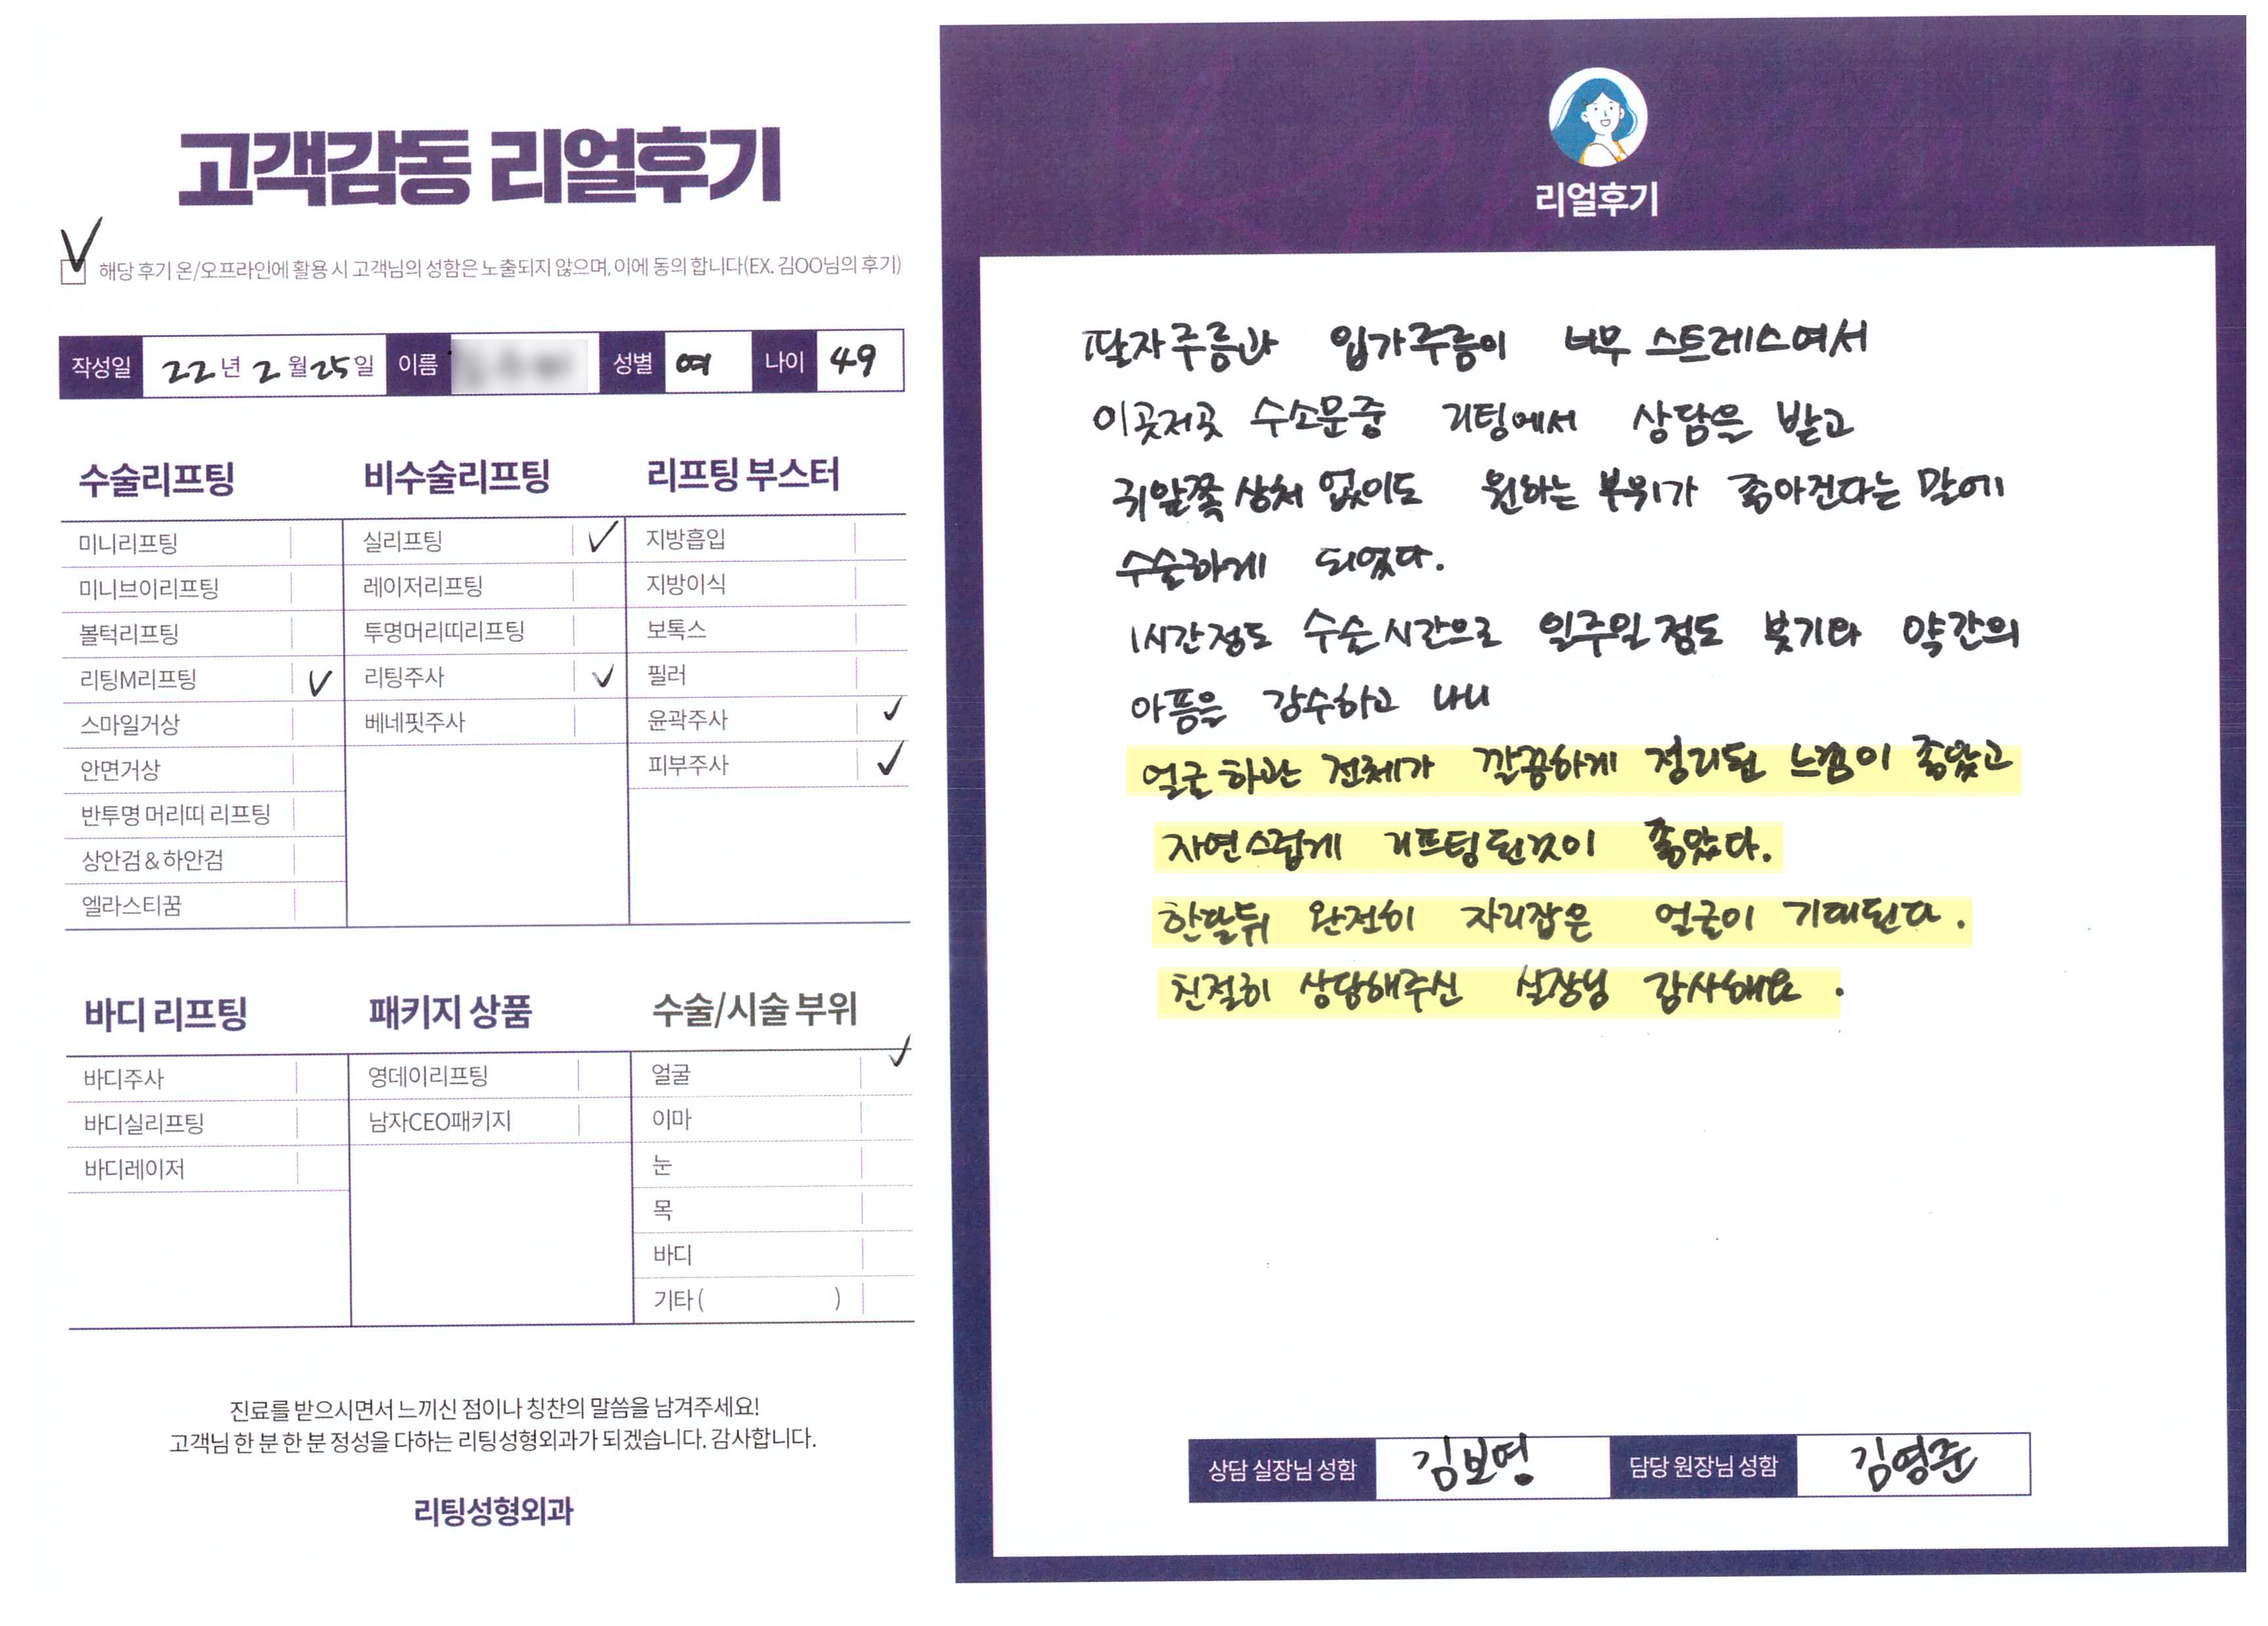 고객감동 리얼후기
해당 후기 온/오프라인에 활용 시 고객님의 성함은 노출되지 않으며, 이에 동의 합니다(EX. 김OO님의 후기)
작성일 22년 2월 25일 이름 성별 여 나이 49
수술리프팅
미니리프팅
미니브이리프팅
볼턱리프팅
리팅M리프팅 ✓
스마일거상
안면거상
반투명 머리띠 리프팅
상안검 & 하안검
엘라스티꿈
비수술리프팅
실리프팅 ✓
레이저리프팅
투명머리띠리프팅
리팅주사 ✓
베네핏주사
리프팅 부스터
지방흡입
지방이식
보톡스
필러
윤곽주사 ✓
피부주사 ✓
바디 리프팅
바디주사
바디실리프팅
바디레이저
패키지 상품
영데이리프팅
남자CEO패키지
수술/시술 부위
얼굴 ✓
이마
눈
목
바디
기타 ( )
진료를 받으시면서 느끼신 점이나 칭찬의 말씀을 남겨주세요!
고객님 한 분 한 분 정성을 다하는 리팅성형외과가 되겠습니다. 감사합니다.
리팅성형외과
리얼후기
팔자주름과 입가주름이 너무 스트레스여서
이곳저곳 수소문중 리팅에서 상담을 받고
귀앞쪽 상처 없이도 원하는 부위가 좋아진다는 말에
수술하게 되었다.
1시간정도 수술시간으로 일주일정도 붓기와 약간의
아픔은 감수하고 나니
얼굴 하관 전체가 깔끔하게 정리된 느낌이 좋았고
자연스럽게 리프팅된것이 좋았다.
한달뒤 완전히 자리잡은 얼굴이 기대된다.
친절히 상담해주신 실장님 감사해요.
상담 실장님 성함 김보영 담당 원장님 성함 김영준